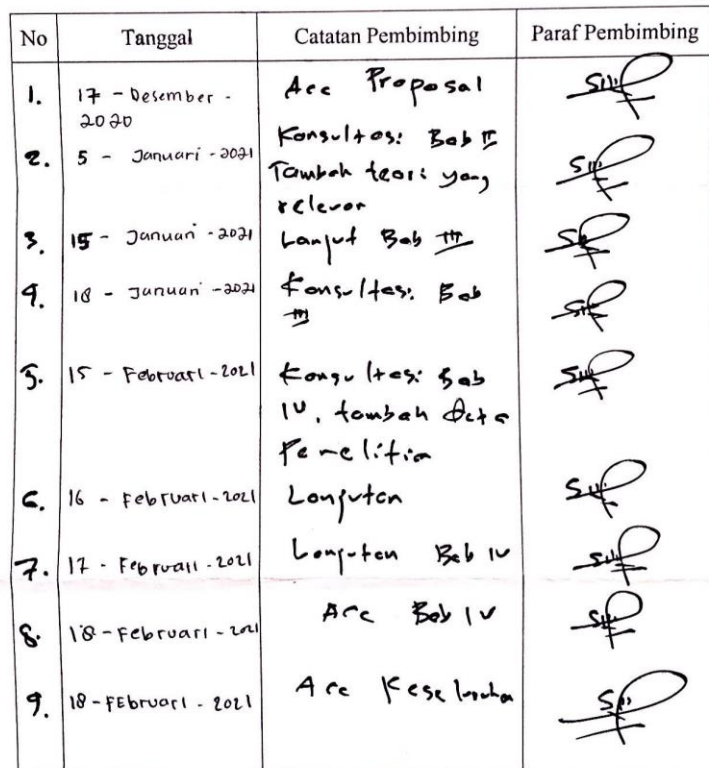 No Tanggal Catatan Pembimbing Paraf Pembimbing
1. 17 - Desember - Acc Proposal
2020
Konsultasi Bab II
2. 5 - Januari - 2021 Tambah teori yang
relevan
3. 15 - Januari - 2021 Lanjut Bab III
4. 18 - Januari - 2021 Konsultasi Bab
III
5. 15 - Februari - 2021 Konsultasi Bab
IV, tambah data
Penelitian
6. 16 - Februari - 2021 Lanjutan
7. 17 - Februari - 2021 Lanjutan Bab IV
8. 18 - Februari - 2021 Acc Bab IV
9. 18 - FEbruari - 2021 Acc Keseluruhan